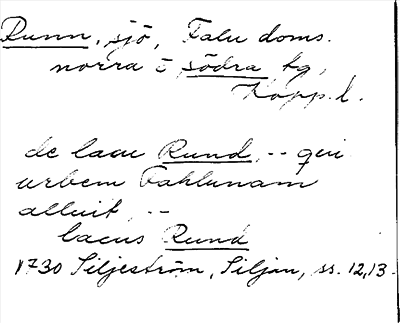 Runn, sjö, Falu doms.
norra o södra tg,
Kopp. l.
de lacu Rund, -- qui
urbem Fahlunam
alluit, --
lacus Rund
1730 Siljeström, Siljan, ss. 12, 13.